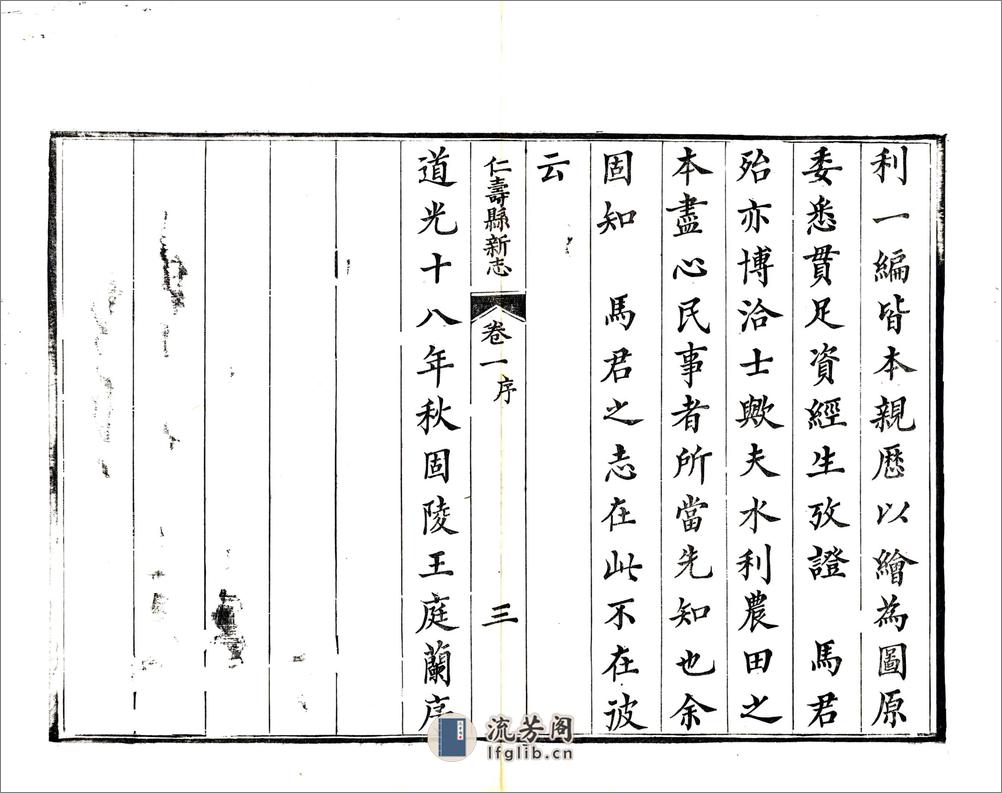 利一編皆本親歷以繪為圖原
委悉貫足資經生攷證　馬君
殆亦博洽士歟夫水利農田之
本盡心民事者所當先知也余
固知　馬君之志在此不在彼
云
仁壽縣新志　卷一序　三
道光十八年秋固陵王庭蘭序
流芳阁
lfglib.cn